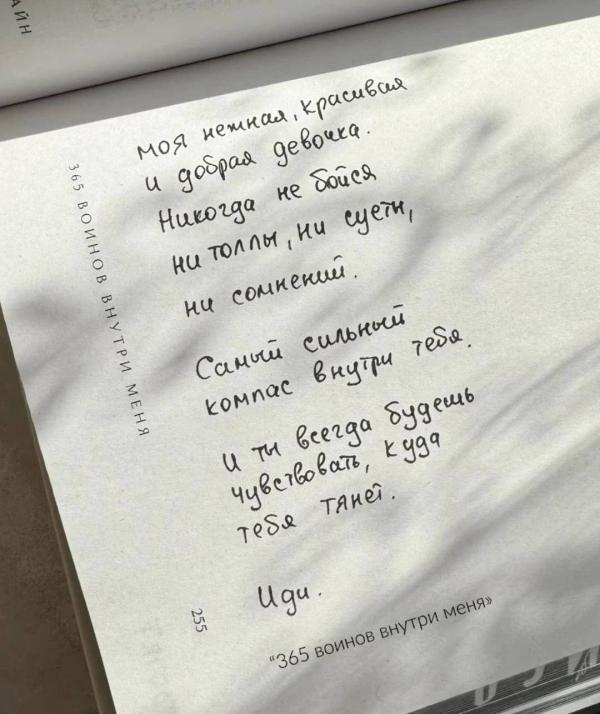 АЙН
365 ВОИНОВ ВНУТРИ МЕНЯ
моя нежная, красивая
и добрая девочка.
Никогда не бойся
ни толпы, ни суеты,
ни сомнений.
Самый сильный
компас внутри тебя.
И ты всегда будешь
чувствовать, куда
тебя тянет.
Иди.
255
"365 воинов внутри меня»